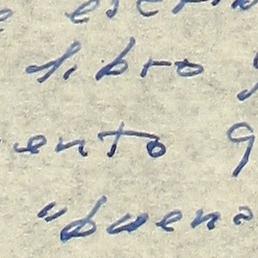 libro
ento q
"buena